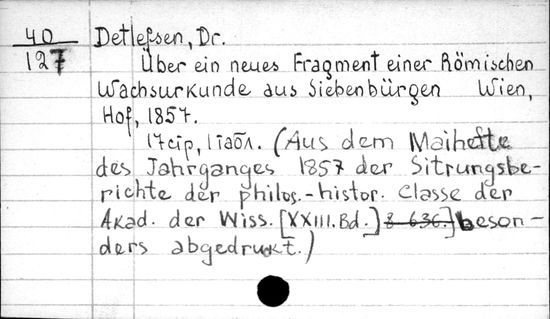 40
127
Detlefsen, Dr.
Über ein neues Fragment einer Römischen
Wachsurkunde aus Siebenbürgen Wien,
Hof, 1857.
17стр, 1табл. (Aus dem Maihefte
des Jahrganges 1857 der Sitrungsbe-
richte der philos.-histor. Classe der
Akad. der Wiss. [XXIII. Bd.] S 636.] beson-
ders abgedruckt.)